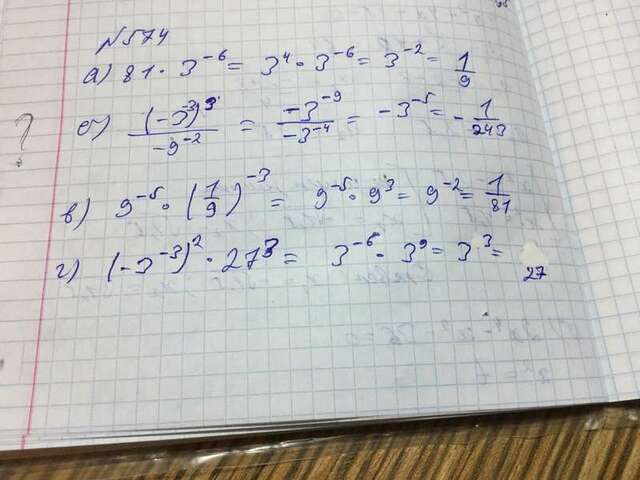 N574
а) 81 · 3⁻⁶ = 3⁴ · 3⁻⁶ = 3⁻² = 1/9
? б) (-3⁻³)³/-9⁻² = -3⁻⁹/-3⁻⁴ = -3⁻⁵ = -1/243
в) 9⁻⁵ · (1/9)⁻³ = 9⁻⁵ · 9³ = 9⁻² = 1/81
г) (-3⁻³)² · 27³ = 3⁻⁶ · 3⁹ = 3³ = 27